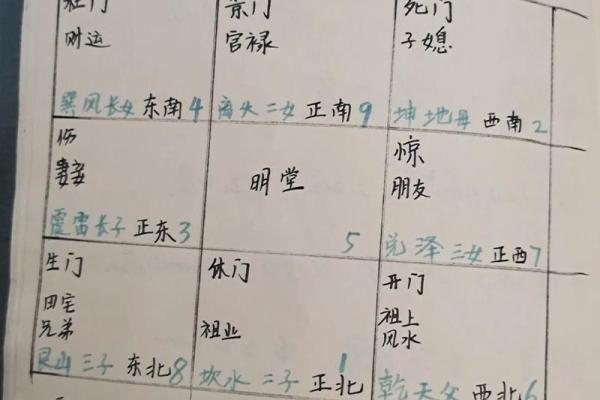 杜门
财运
巽风长女 东南4
景门
官禄
离火二女 正南9
死门
子媳
坤地母 西南2
伤
妻妾
震雷长子 正东3
明堂
5
惊
朋友
兑泽三女 正西7
生门
田宅
兄弟
艮山三子 东北8
休门
祖业
坎水二子 正北1
开门
祖上
风水
乾天父 西北6